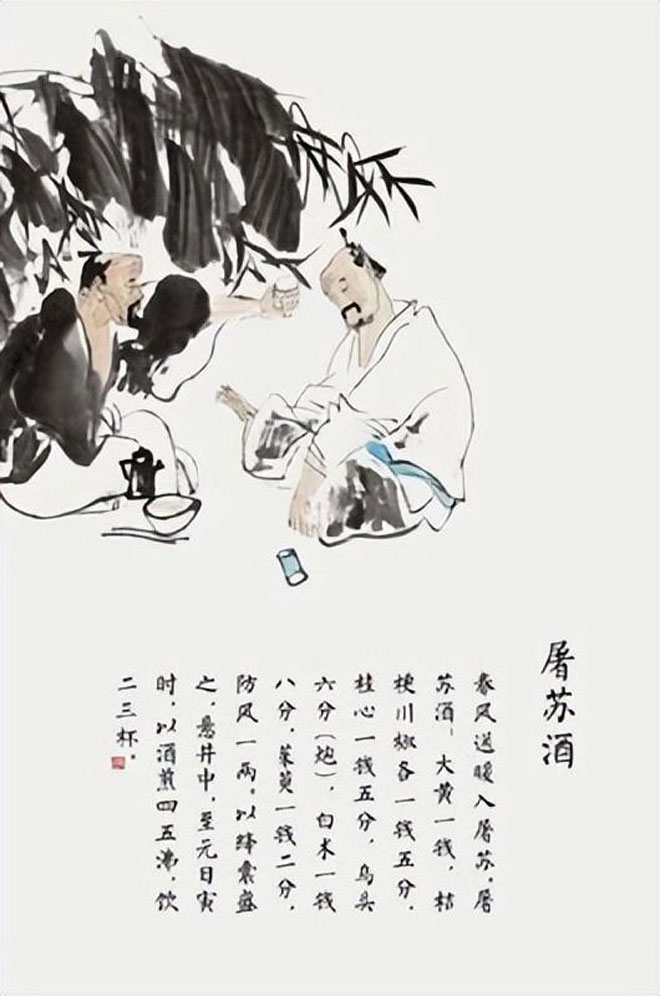 屠苏酒
春风送暖入屠苏。屠
苏酒：大黄一钱，桔
梗川椒各一钱五分，
桂心一钱五分，乌头
六分（炮），白术一钱
八分，茱萸一钱二分，
防风一两。以绛囊盛
之，悬井中，至元日寅
时，以酒煎四五沸，饮
二三杯。